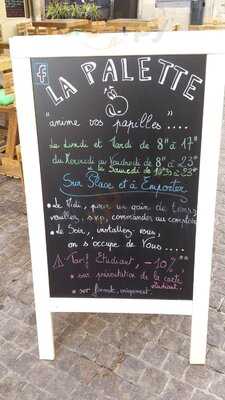 f
LA PALETTE
"anime vos papilles"....
Le Lundi et Mardi de 8ʰ à 17ʰ
du Mercredi au Vendredi de 8ʰ à 23ʰ
le Samedi de 10ʰ30 à 23ʰ
Sur Place et à Emporter
• Le Midi, pour un gain de temps
veuillez, s.v.p, commander au comptoir
• Le Soir, installez vous,
on s'occupe de Vous....
⚠ Tarif Etudiant, -10%
* sur présentation de la carte
étudiant.
* sur formule, uniquement.